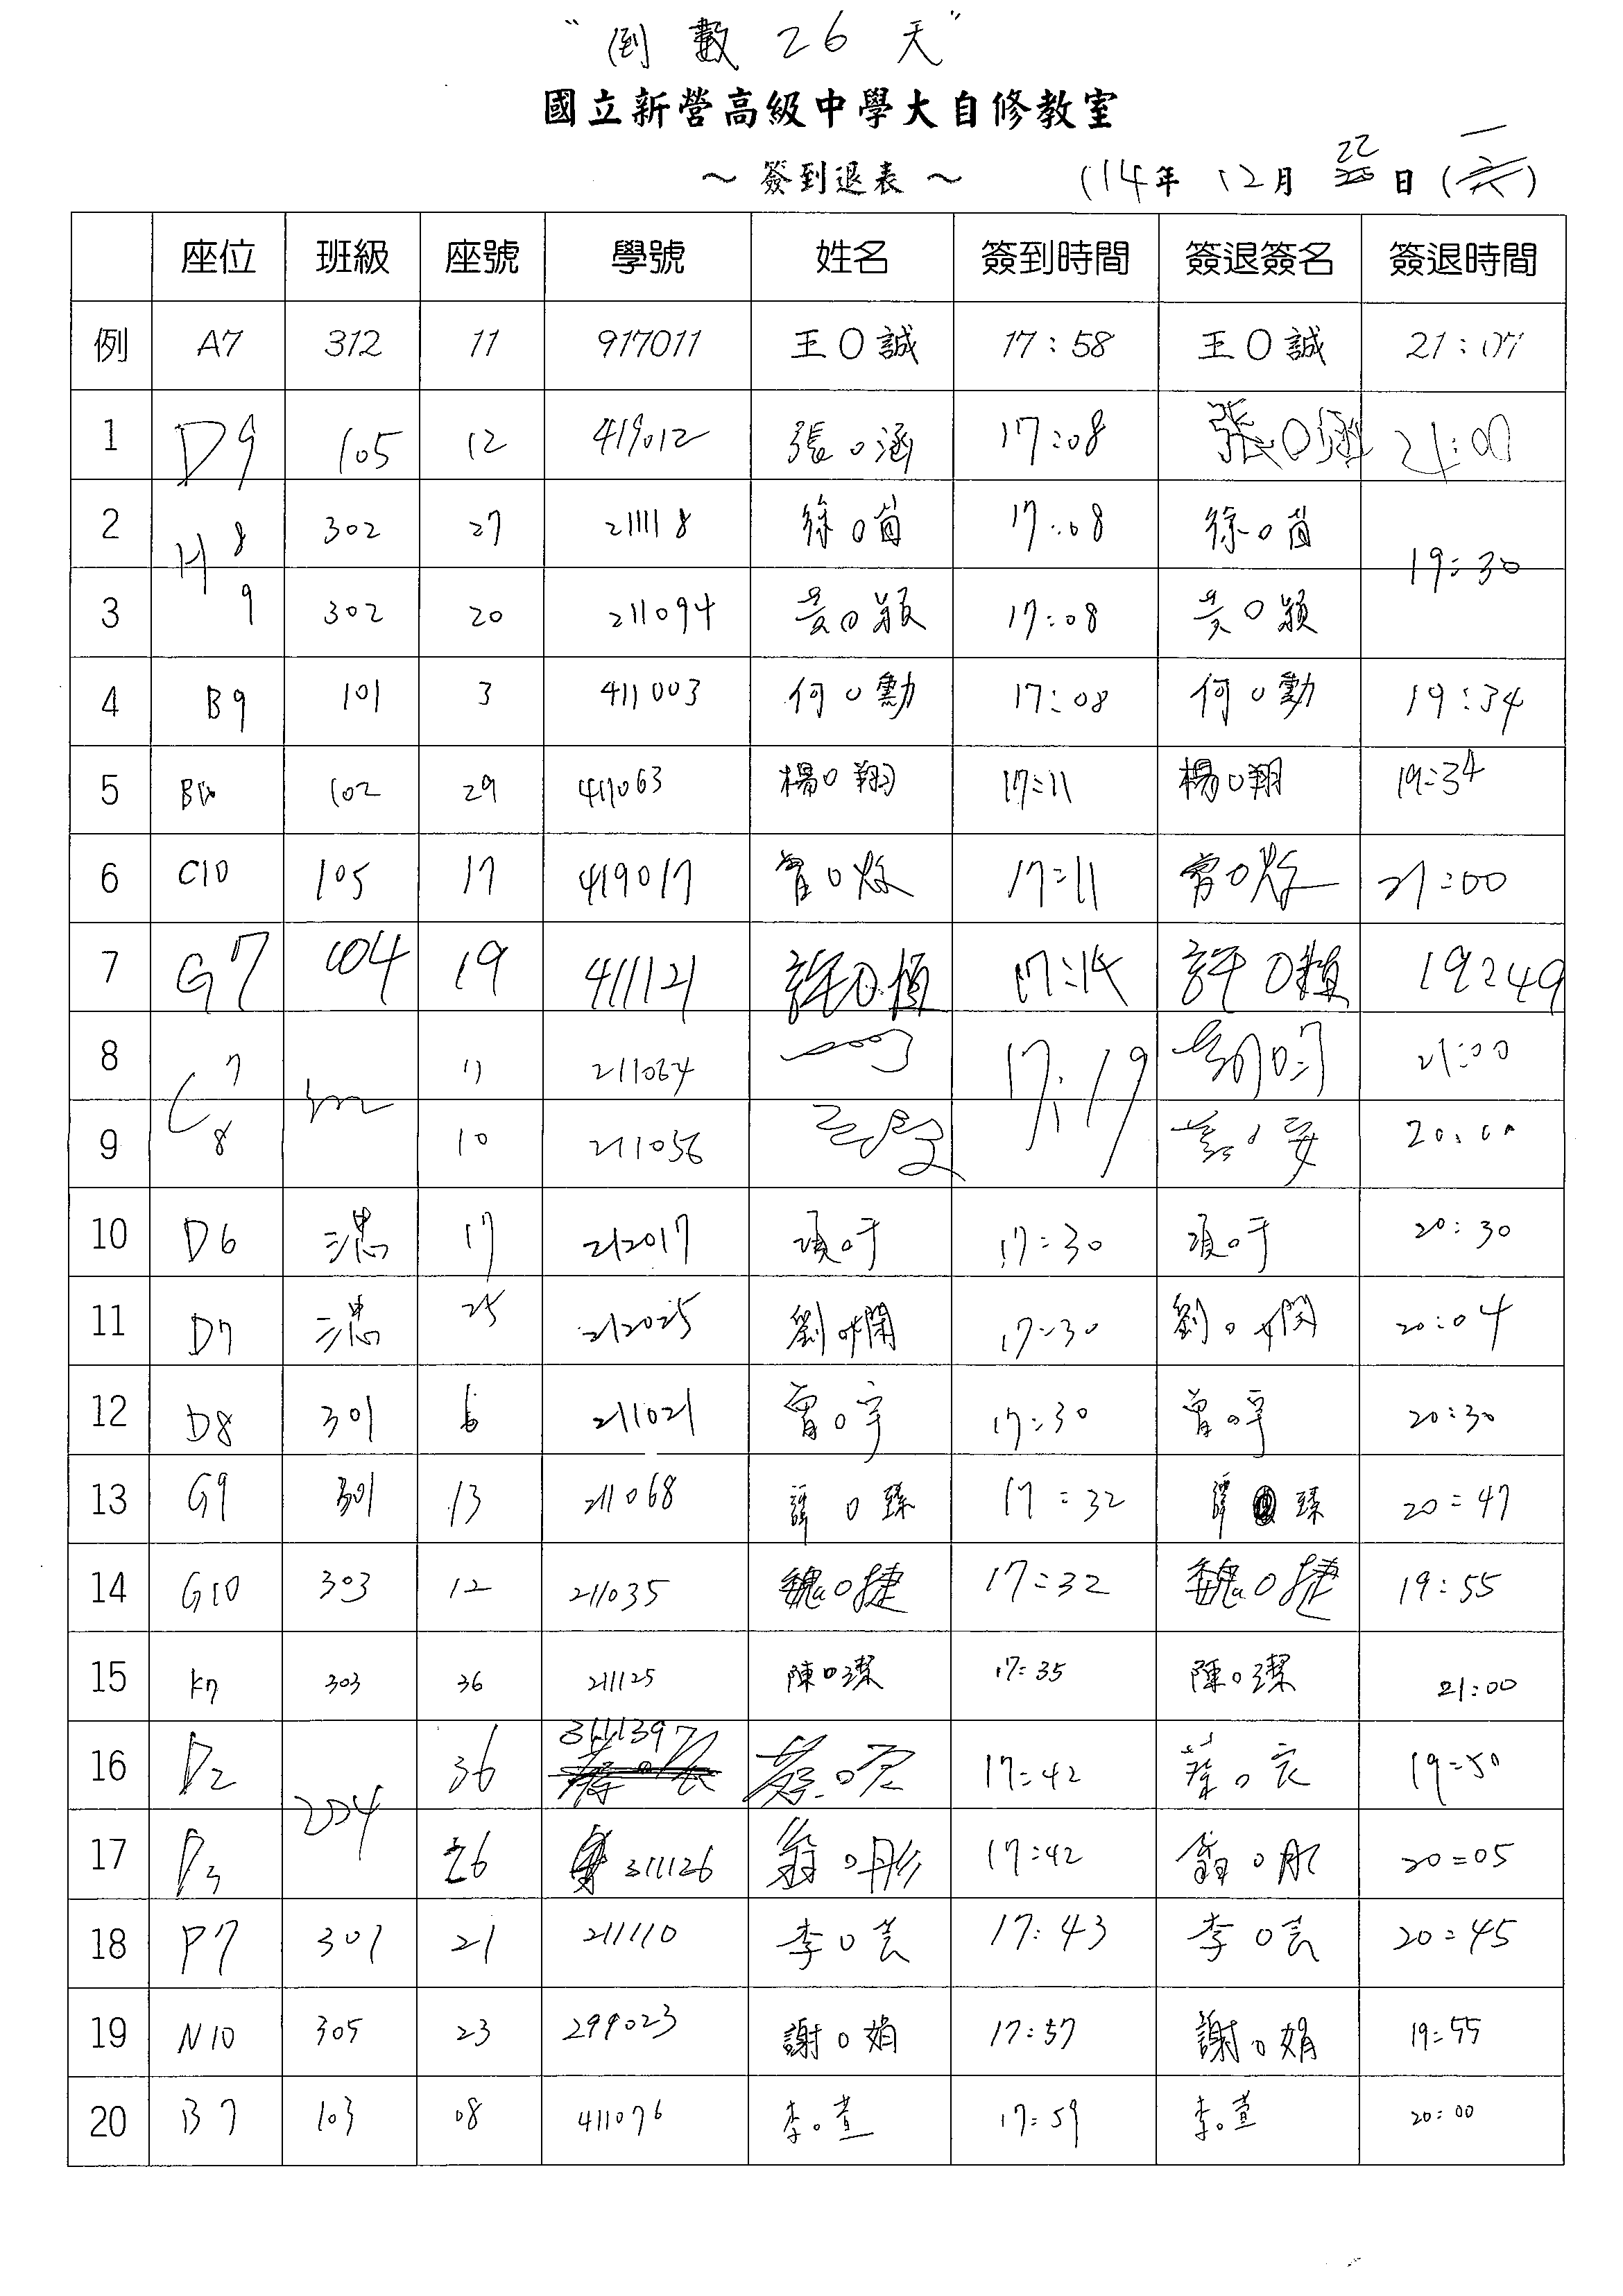 “倒數 26 天”
國立新營高級中學大自修教室
～ 簽到退表 ～ 114年 12月 22日(一)
座位 班級 座號 學號 姓名 簽到時間 簽退簽名 簽退時間
例 A7 312 11 917011 王O誠 17:58 王O誠 21:07
1 D9 105 12 419012 張O涵 17:08 張O涵 21:00
2 H8 302 27 211118 徐O 17:08 徐O 19:30
3 9 302 20 211094 黃O穎 17:08 黃O穎
4 B9 101 3 411003 何O勳 17:08 何O勳 19:34
5 B10 102 29 411063 楊O翔 17:11 楊O翔 19:34
6 C10 105 17 419017 曾O 17:11 曾O 21:00
7 G7 104 19 411121 許O 17:14 許O 19:49
8 C7 11 211064 17:19 21:00
9 8 10 211056 20:00
10 D6 三忠 17 212017 項O于 17:30 項O于 20:30
11 D7 三忠 25 212025 劉O嫻 17:30 劉O嫻 20:04
12 D8 301 6 211021 曾O宇 17:30 曾O宇 20:30
13 G9 301 13 211068 譚O臻 17:32 譚O臻 20:47
14 G10 303 12 211035 魏O捷 17:32 魏O捷 19:55
15 K7 303 36 211125 陳O潔 17:35 陳O潔 21:00
16 D2 204 36 311139 蔡O 17:42 蔡O 19:50
17 D3 26 311126 翁O彤 17:42 翁O彤 20:05
18 P7 301 21 211110 李O芸 17:43 李O芸 20:45
19 N10 305 23 299023 謝O娟 17:57 謝O娟 19:55
20 B7 103 08 411076 李O萱 17:59 李O萱 20:00